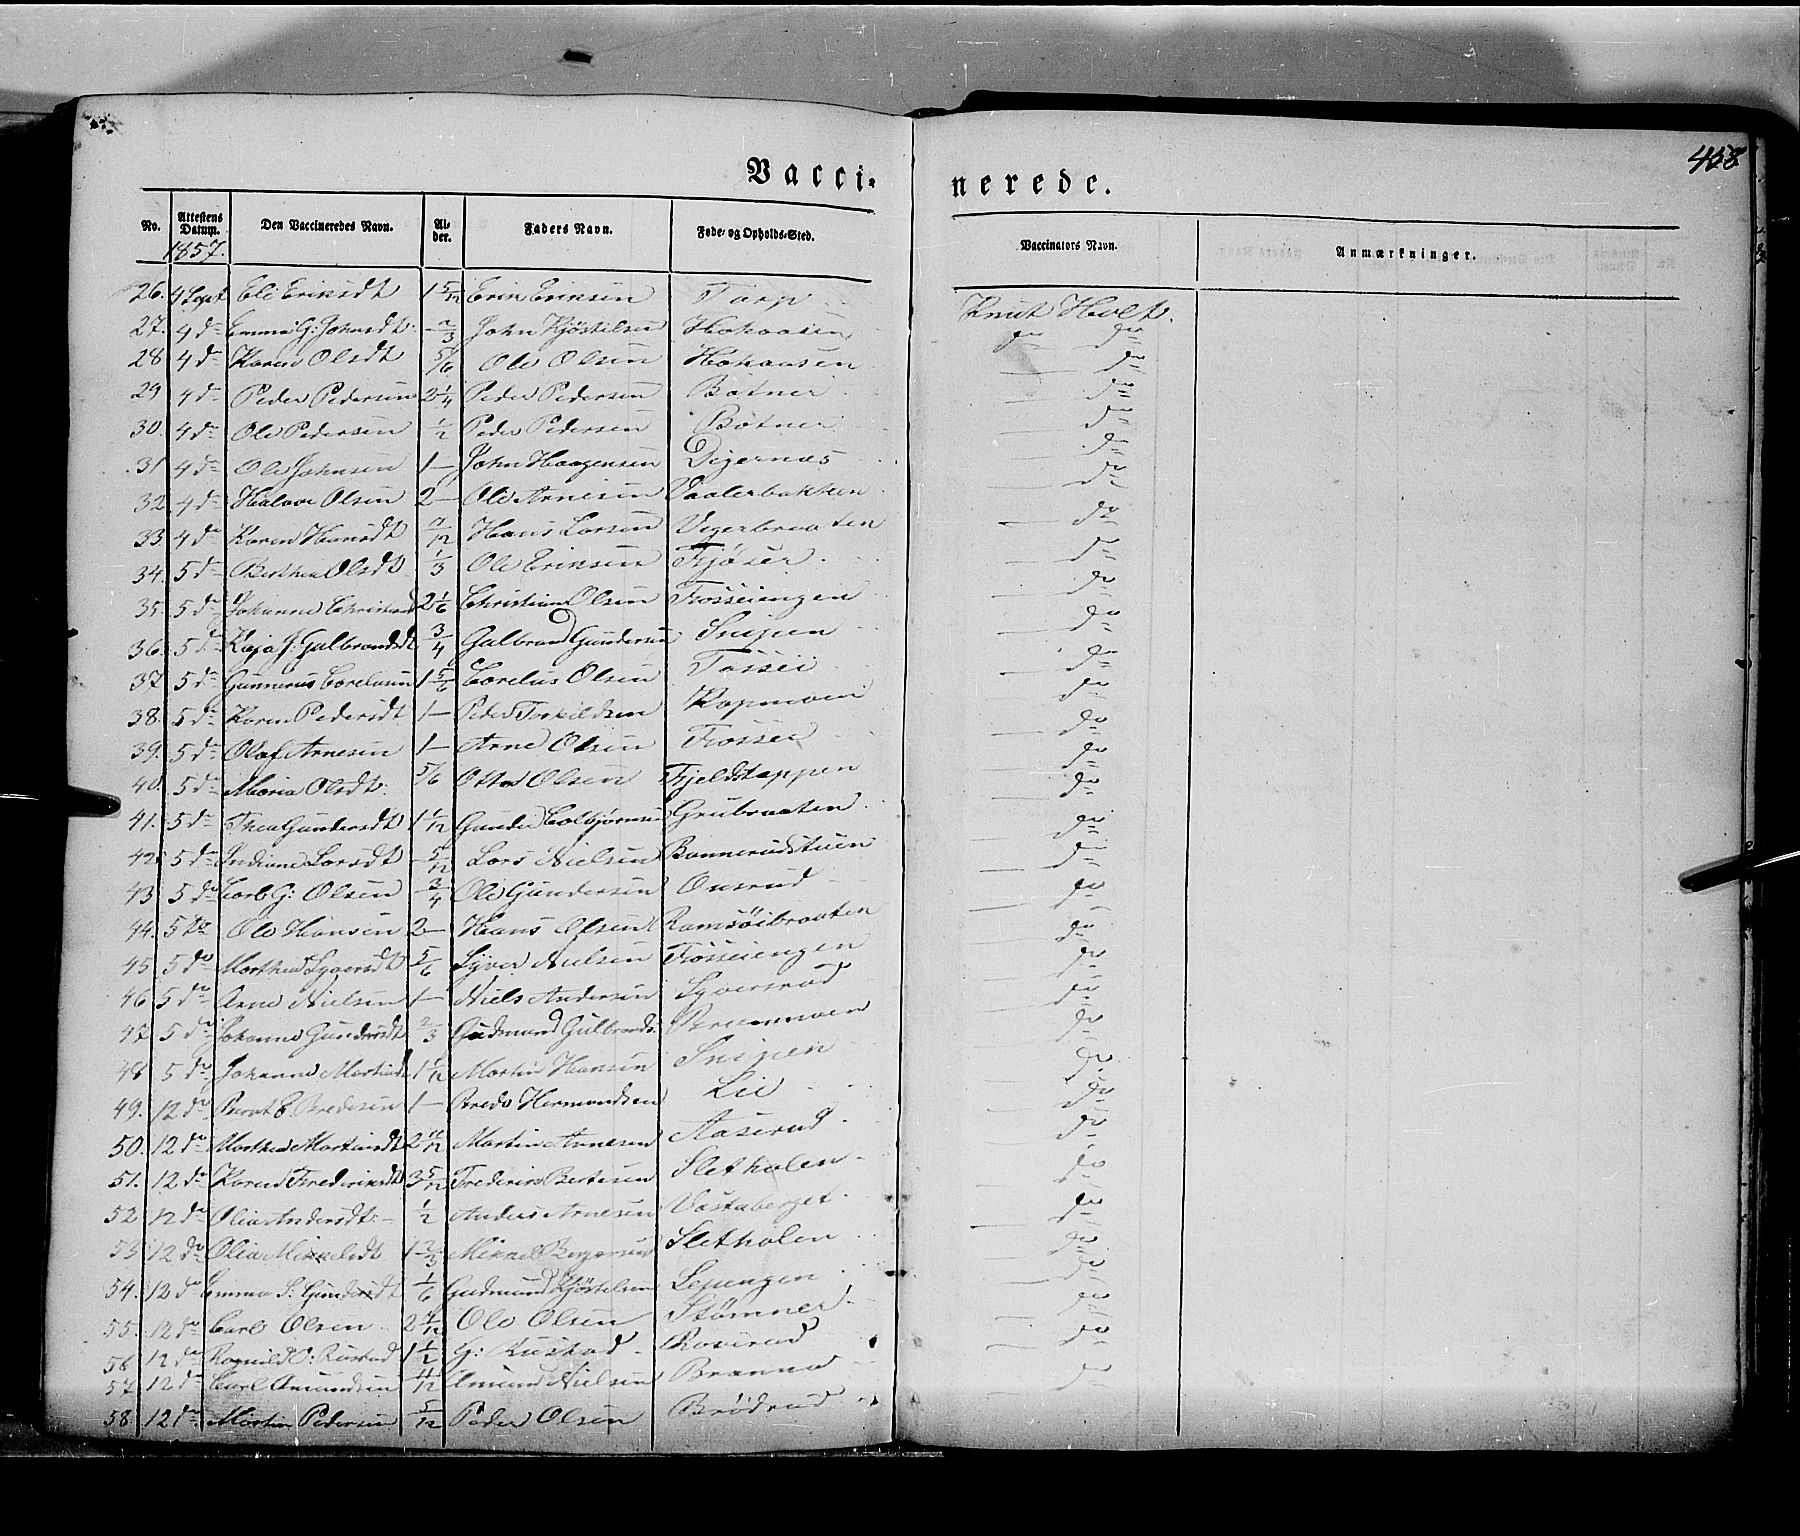 458
Vacci- nerede.
No. Attestens Datum. Den Vaccineredes Navn. Alder. Faders Navn. Føde- og Opholds-Sted. Vaccinators Navn. Anmærkninger.
1857.
26. 4 Sept Eli Eriksdt 1 5/12 Erik Eriksen Torp Knut Holt.
27. 4 do Emma G: Johnsdt: - 2/3 John Kjøstelsen Hokaasen do do
28 4 do Karen Olsdt 5/6 Ole Olsen Hokaasen — do
29 4 do Peder Pedersen 2 1/4 Peder Pedersen Botner — do
30. 4 do Ole Pedersen 1/2 Peder Pedersen Botner — do
31 4 do Ole Johnsen 1 — John Haagensen Digernæs — do
32. 4 do Halvor Olsen 2 — Ole Arnesen Vaalerbakken — do
33. 4 do Karen Hansdt 7/12 Hans Larsen Vegerbraaten — do
34. 5 do Berthea Olsdt 1/3 Ole Eriksen Fjøser — do
35. 5 do Johanne Christiansd 2 1/6 Christian Olsen Fosseiengen — do
36. 5 do Kaja J: Gulbrandsdt 3/4 Gulbrand Gundersen Snipen — do
37. 5 do Gunnerus Corelusen 1 5/6 Corelius Olsen Fossei — do
38. 5 do Karen Pedersdt 1 — Peder Torkildsen Kopmoen — do
39. 5 do Olaf Arnesen 1 — Arne Olsen Fossei — do
40. 5 do Maria Olsdt: 5/6 Otto Olsen Fjeldstappen — do
41. 5 do Thea Gundersdt 1 1/12 Gunder Colbjørnsen Grubraaten — do
42. 5 do Indiane Larsdt - 5/12 Lars Nielsen Bannerudstuen — do
43. 5 do Carl G: Olsen - 3/4 Ole Gundersen Onsrud — do
44. 5 do Ole Hansen 2 — Hans Olsen Ramsøibraaten — do
45. 5 do Marthea Syversdt 5/6 Syver Nielsen Fosseiengen — do
46 5 do Arne Nielsen 1 — Niels Andersen Syversrud — do
47 5 do Johanne Gundersdt 2/3 Gudmund Gulbrands: — do
48 5 do Johanne Martinsdt 1 1/12 Martin Hansen Snipen — do
49. 12 do Bernt E. Bredesen 1 — Brede Hermandsen Lie — do
50. 12 do Marthea Martinsdt 2 11/12 Martin Arnesen Aaserud — do
51. 12 do Karen Frederiksdt 3 5/12 Frederik Bertesen Sletholen — do
52 12 do Olia Andersdt: - 1/2 Anders Arnesen Vestaberget — do
53 12 do Olia Mikkelsdt 1 2/3 Mikkel Borgersen Sletholen — do
54. 12 do Emma S: Gundersdt 1/6 Gudmund Kjøstelsen Lepengen — do
55. 12 do Carl Olsen 2 Ole Olsen Stømner — do
56 12 do Ragnild O: Rustad 1 1/2 G: Rustad — do
57. 12 do Carl Amundsen 11/12 Amund Nielsen Branna — do
58. 12 do Martin Pedersen 5/12 Peder Olsen Brødrud